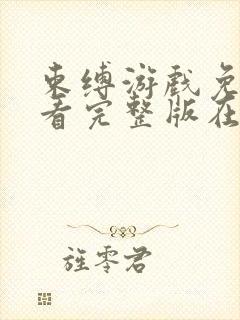 束缚游戏免
看完整版在
旌零君